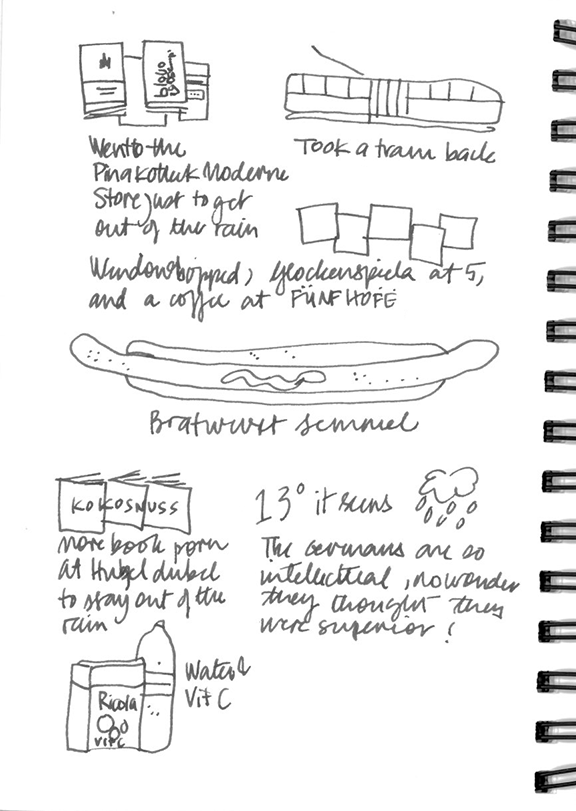 Went to the
Pinakothek Moderne
Store just to get
out of the rain
Took a tram back
Windowshopped, glockenspiela at 5,
and a coffee at FÜNF HÖFE
Bratwurst semmel
KOKOSNUSS
more book porn
at Hugel dubel
to stay out of the
rain
13° it seems
The Germans are so
intellectual, no wonder
they thought they
were superior!
Ricola
vit C
Water &
Vit C